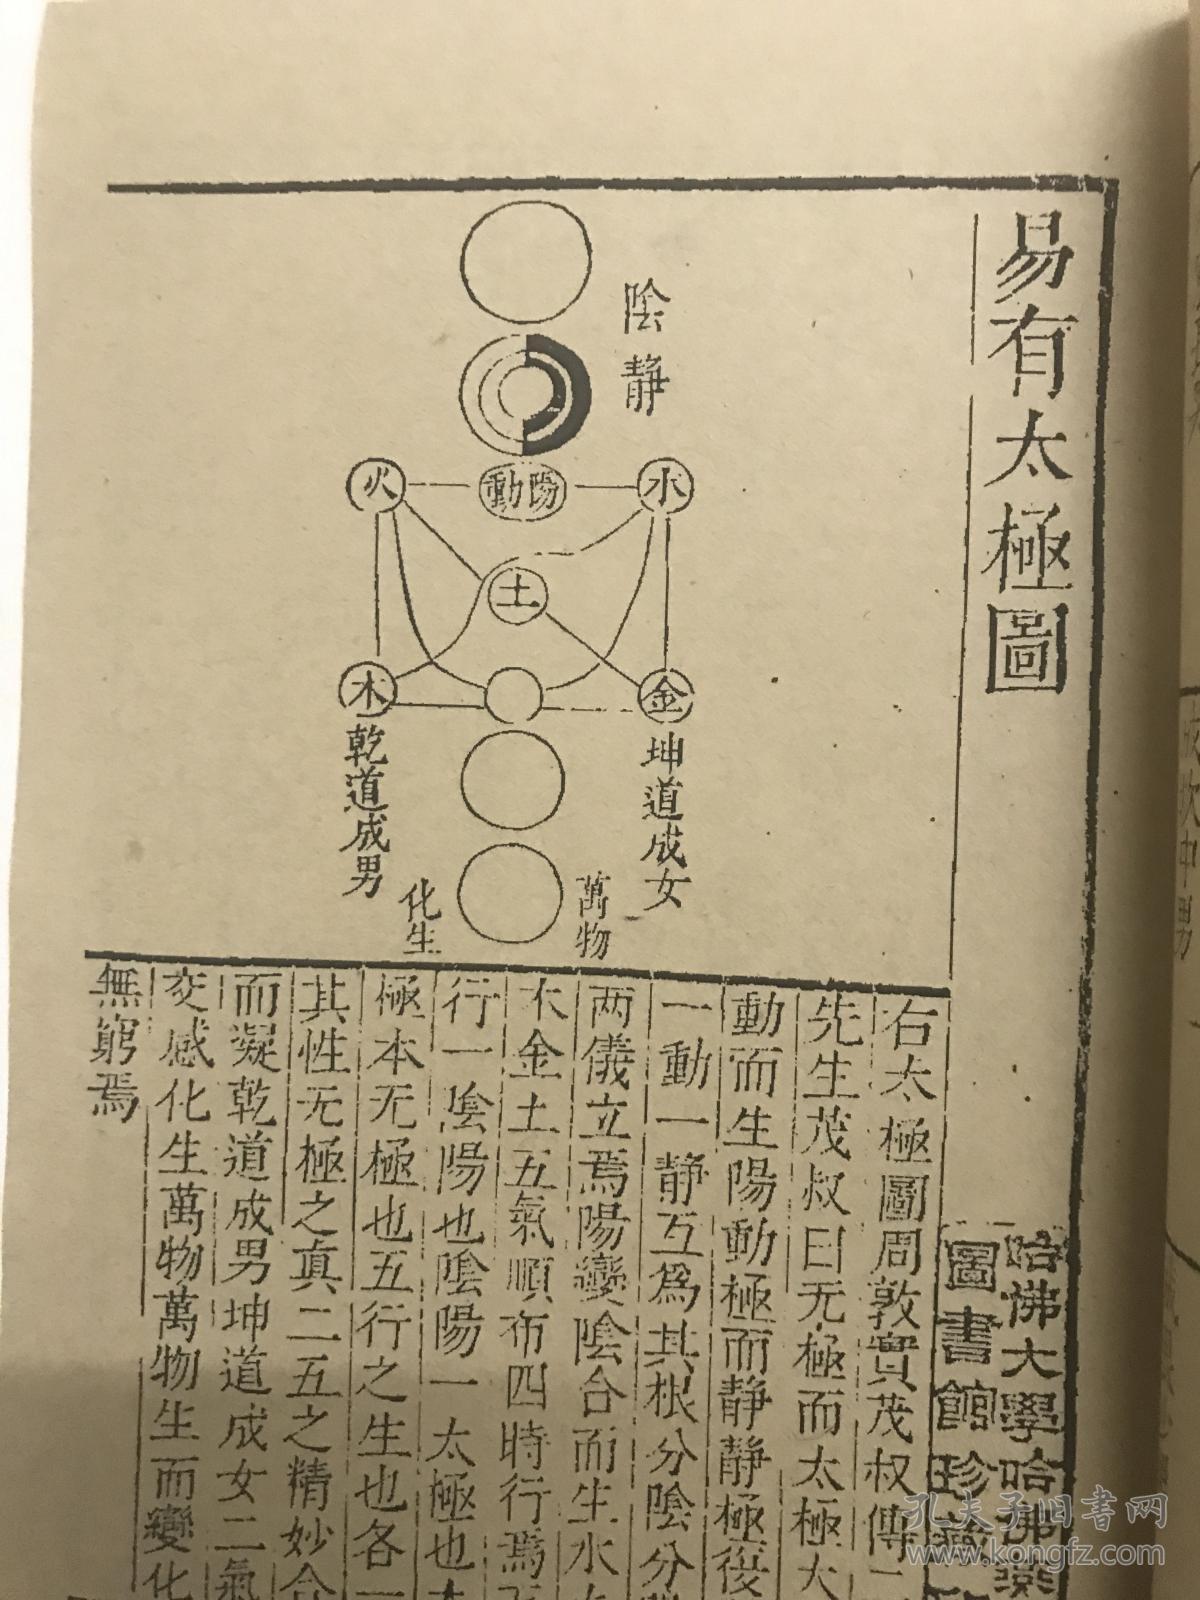 易有太極圖
陰靜
陽動
水
火
土
金
木
坤道成女
乾道成男
萬物
化生
右太極圖周敦實茂叔傳二
先生茂叔曰无極而太極太
動而生陽動極而静静極復
一動一静互爲其根分陰分
两儀立焉陽變陰合而生水
木金土五氣順布四時行焉
行一陰陽也陰陽一太極也
極本无極也五行之生也各一
其性无極之真二五之精妙合
而凝乾道成男坤道成女二氣
交感化生萬物萬物生而變化
無窮焉
哈佛大學哈佛燕
圖書館珍藏
孔夫子旧书网
www.kongfz.com
坎中男